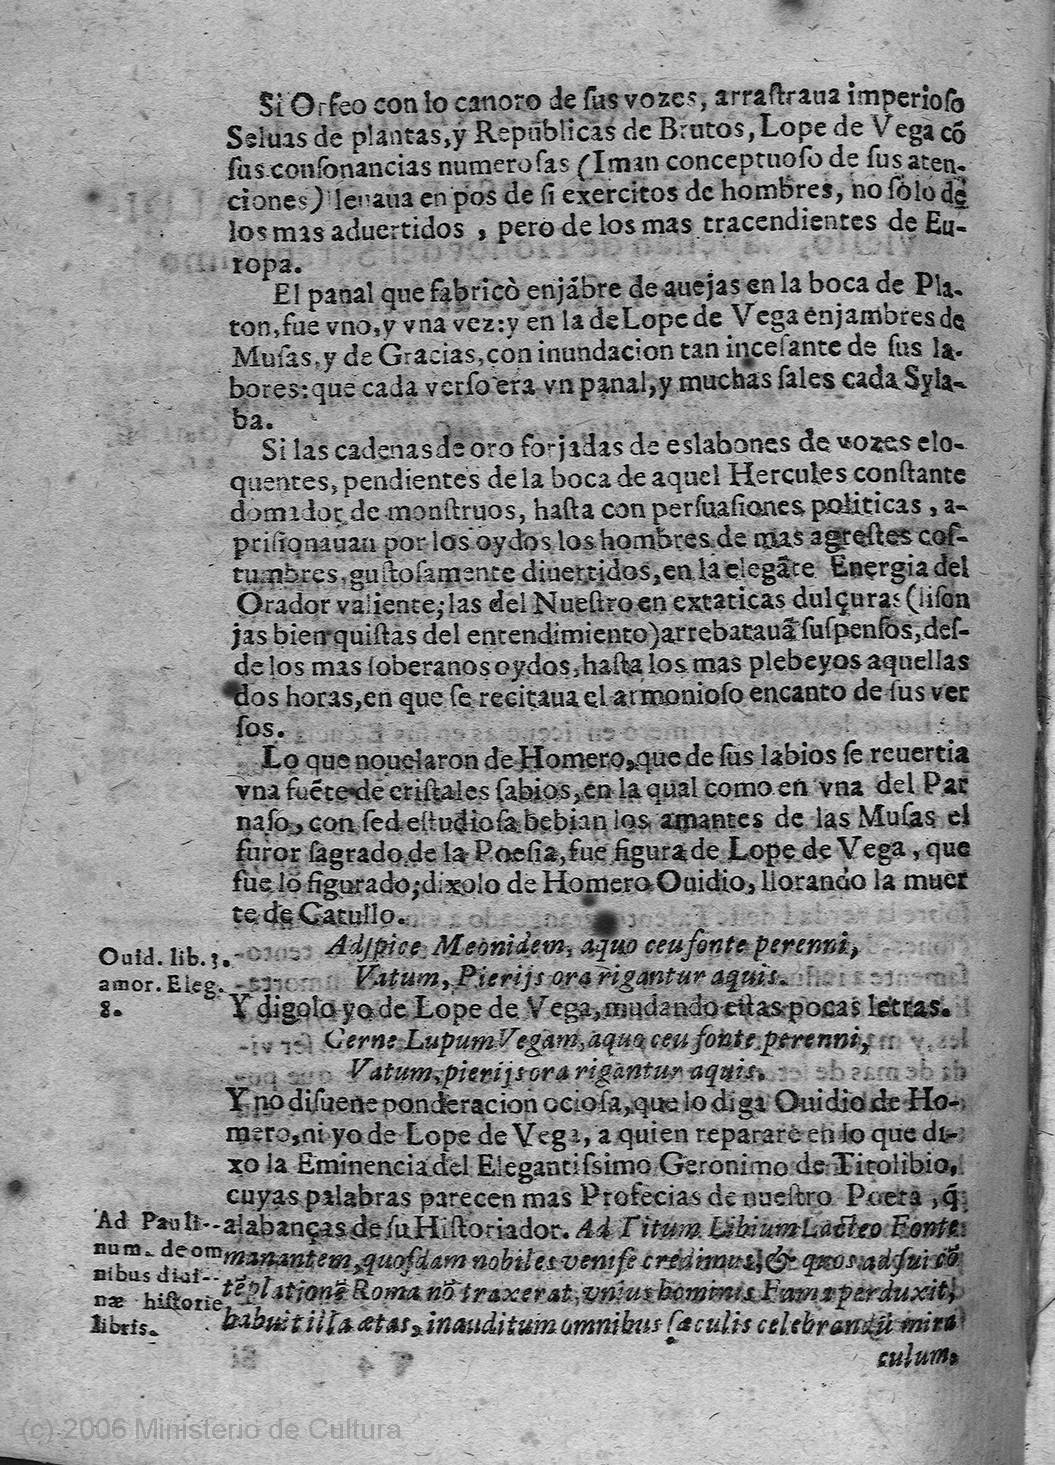 Si Orfeo con lo canoro de sus vozes, arraſtraua imperioſo
Seluas de plantas, y Republicas de Brutos, Lope de Vega cō
ſus conſonancias numeroſas (Iman conceptuoſo de ſus aten-
ciones) leuaua en pos de ſi exercitos de hombres, no ſolo de
los mas aduertidos , pero de los mas tracendientes de Eu-
ropa.
El panal que fabricò enjábre de auejas en la boca de Pla-
ton, fue vno, y vna vez: y en la de Lope de Vega enjambres de
Muſas, y de Gracias, con inundacion tan inceſante de ſus la-
bores: que cada verſo era vn panal, y muchas ſales cada Syla-
ba.
Si las cadenas de oro forjadas de eslabones de vozes elo-
quentes, pendientes de la boca de aquel Hercules conſtante
domador de monſtruos, haſta con perſuaſiones politicas , a-
priſionauan por los oydos los hombres de mas agreſtes coſ-
tumbres, guſtoſamente diuertidos, en la elegāte Energia del
Orador valiente; las del Nueſtro en extaticas dulçuras (liſon
jas bien quiſtas del entendimiento) arrebatauā ſuſpenſos, deſ-
de los mas ſoberanos oydos, haſta los mas plebeyos aquellas
dos horas, en que ſe recitaua el armonioſo encanto de ſus ver
ſos.
Lo que nouelaron de Homero, que de ſus labios ſe reuertia
vna fuēte de criſtales ſabios, en la qual como en vna del Par
naſo, con ſed eſtudioſa bebian los amantes de las Muſas el
furor ſagrado de la Poeſia, fue figura de Lope de Vega , que
fue lo figurado; dixolo de Homero Ouidio, llorando la muer
te de Catullo.
Adſpice Meonidem, a quo ceu fonte perenni,
Ouid. lib. 3.
amor. Eleg.
8.
Vatum, Pierijs ora rigantur aquis.
Y digolo yo de Lope de Vega, mudando eſtas pocas letras.
Cerne Lupum Vegam, a quo ceu fonte perenni,
Vatum, pierijs ora rigantur aquis.
Y no diſuene ponderacion ocioſa, que lo diga Ouidio de Ho-
mero, ni yo de Lope de Vega, a quien repararè en lo que di-
xo la Eminencia del Elegantiſsimo Geronimo de Titolibio,
cuyas palabras parecen mas Profecias de nueſtro Poeta , q̄
alabanças de ſu Hiſtoriador. Ad Titum Libium Lacteo Fonte
Ad Pauli-
num. de om
nibus diui-
næ hiſtorie
libris.
manantem, quoſdam nobiles veniſe credimus, & quos ad ſui cō
tēplationē Roma nō traxerat, vnius hominis Fama perduxit,
habuit illa ætas, inauditum omnibus ſæculis celebrandū mira
culum.
(c) 2006 Ministerio de Cultura